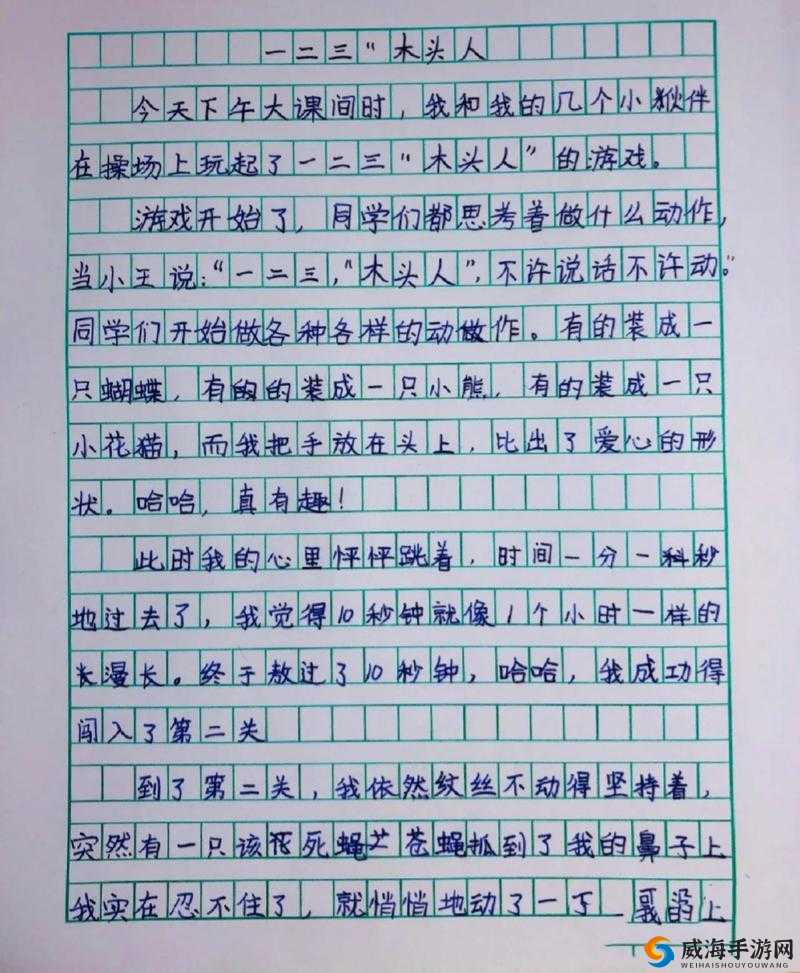 一二三“木头人
今天下午大课间时，我和我的几个小伙伴
在操场上玩起了一二三“木头人”的游戏。
游戏开始了，同学们都思考着做什么动作，
当小王说：“一二三，“木头人”，不许说话不许动。”
同学们开始做各种各样的动做作。有的装成一
只蝴蝶，有的的装成一只小熊，有的装成一只
小花猫，而我把手放在头上，比出了爱心的形
状。哈哈，真有趣！
此时我的心里怦怦跳着，时间一分一秒
地过去了，我觉得10秒钟就像1个小时一样的
长漫长。终于熬过了10秒钟，哈哈，我成功得
闯入了第二关
到了第二关，我依然纹丝不动得坚持着，
突然有一只该死蝇苍蝇抓到了我的鼻子上
我实在忍不住了，就悄悄地动了一下
上
威海手游网
WEIHAISHOUYOUWANG